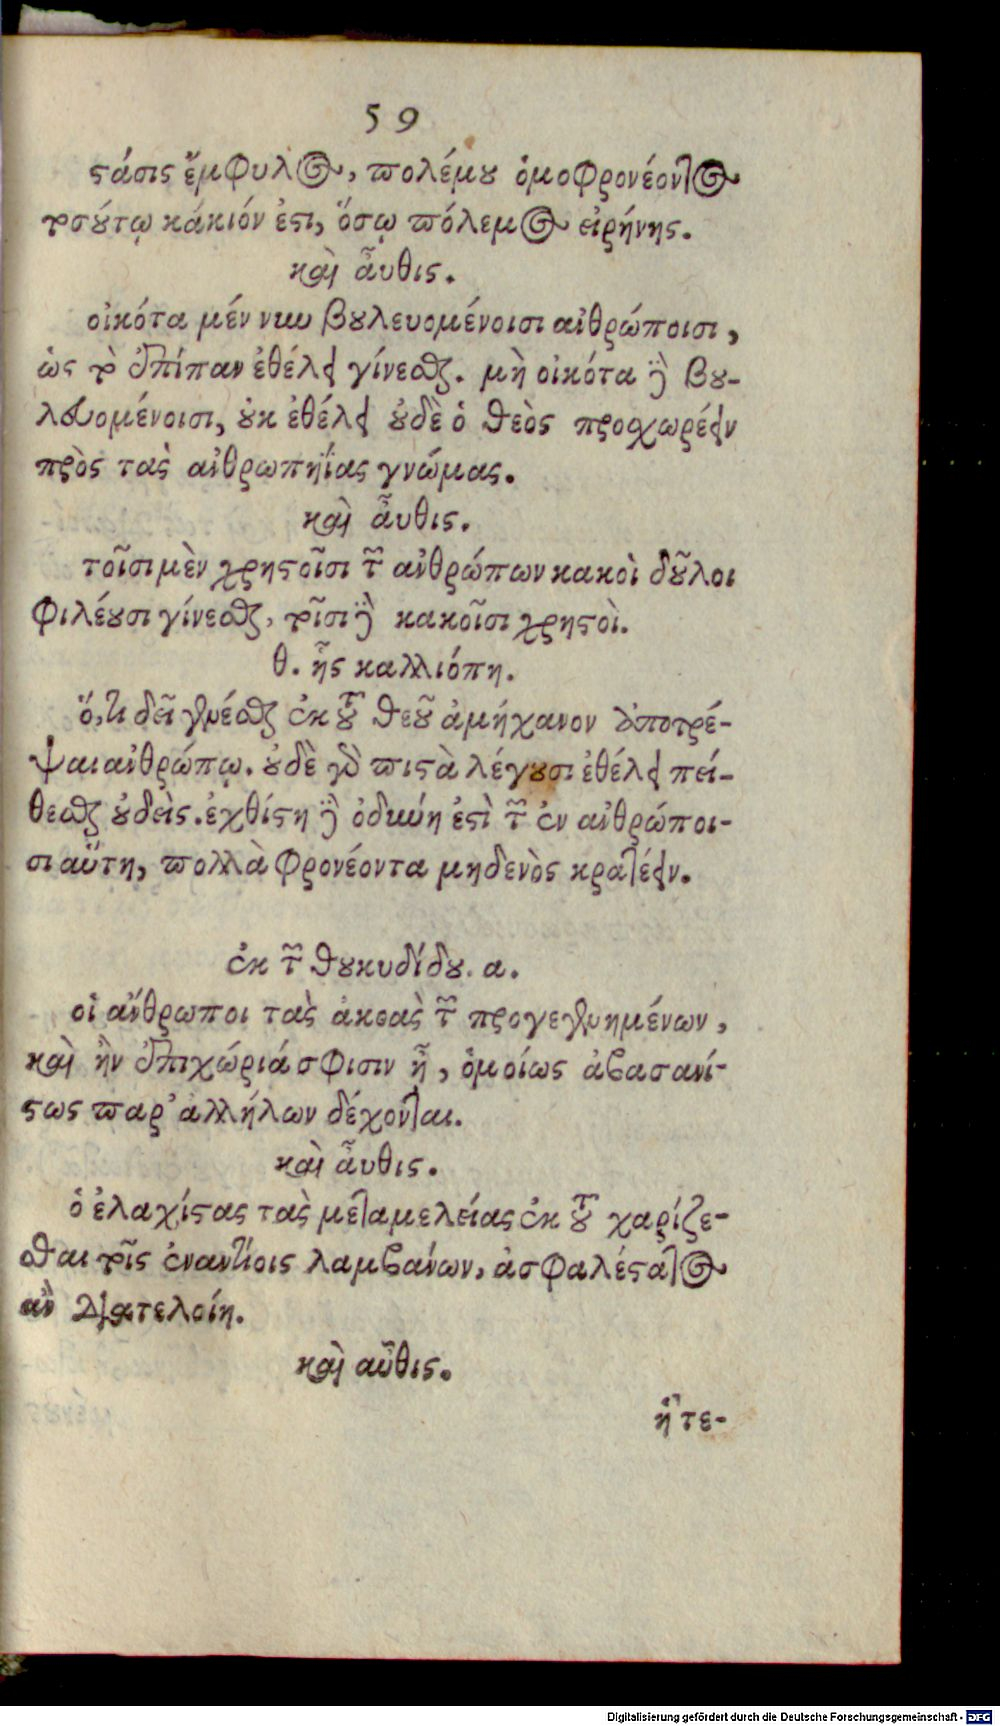 59
στάσις ἔμφυλος, πολέμου ὁμοφρονέοντος
τοσούτῳ κάκιόν ἐστι, ὅσῳ πόλεμος εἰρήνης.
καὶ ἆυθις.
οἰκότα μέν νυν βουλευομένοισι ανθρώποισι,
ὡς τὸ ἐπίπαν ἐθέλει γίνεσθαι. μὴ οἰκότα δὲ βου-
λευομένοισι, οὐκ ἐθέλει οὐδὲ ὁ θεὸς προσχωρέειν
πρὸς τὰς ανθρωπηΐας γνώμας.
καὶ ἆυθις.
τοῖσι μὲν χρηστοῖσι τῶν ανθρώπων κακοὶ δοῦλοι
φιλέουσι γίνεσθαι, τοῖσι δὲ κακοῖσι χρηστοὶ.
θ. ἦς καλλιόπη.
ὅ,τι δεῖ γενέσθαι ἐκ τοῦ θεοῦ ἀμήχανον ἀποτρέ-
ψαι ανθρώπῳ. οὐδὲ γὰρ πιστὰ λέγουσι ἐθέλει πεί-
θεσθαι οὐδεὶς. ἐχθίστη δὲ ὀδύνη ἐστὶ τῶν ἐν ανθρώποι-
σι αὕτη, πολλὰ φρονέοντα μηδενὸς κρατέειν.
ἐκ τῶν θουκυδίδου. α.
οἱ ἄνθρωποι τὰς ἀκοὰς τῶν προγεγενημένων,
καὶ ἢν ἐπιχώρια σφίσιν ᾖ, ὁμοίως ἀβασανί-
στως παρ' ἀλλήλων δέχονται.
καὶ ἆυθις.
ὁ ἐλαχίστας τὰς μεταμελείας ἐκ τοῦ χαρίζε-
σθαι τοῖς ἐναντίοις λαμβάνων, ἀσφαλέστατος
ἂν διατελοίη.
καὶ αὖθις.
ἥ τε-
Digitalisierung gefördert durch die Deutsche Forschungsgemeinschaft - DFG